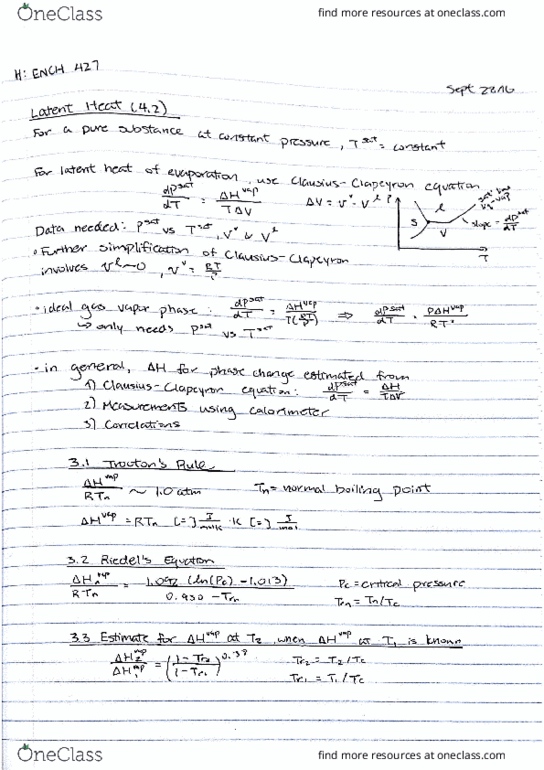 OneClass find more resources at oneclass.com
H: ENCH 427
Sept 22/16
Latent Heat (4.2)
For a pure substance at constant pressure, T^sat = constant
For latent heat of evaporation, use Clausius-Clapeyron equation
dP^sat/dT = ΔH^vap/TΔV ΔV = V^v - V^l
P l S V T slope = dP^sat/dT
Data needed: P^sat vs T^sat, V^v & V^l
• Further simplification of Clausius-Clapeyron
involves V^l ~ 0, V^v = RT/P
• ideal gas vapor phase: dP^sat/dT = ΔH^vap/T(RT/P) ⇒ dP^sat/dT = PΔH^vap/RT²
↳ only needs P^sat vs T^sat
• in general, ΔH for phase change estimated from
1) Clausius-Clapeyron equation: dP^sat/dT = ΔH/TΔV
2) Measurements using calorimeter
3) Correlations
3.1 Trouton's Rule
ΔH^vap/RTn ~ 1.0 atm Tn = normal boiling point
ΔH^vap = RTn [=] J/molK · K [=] J/mol
3.2 Riedel's Equation
ΔHn^vap/RTn = 1.092 (ln(Pc) - 1.013)/0.930 - Trn Pc = critical pressure
Trn = Tn/Tc
3.3 Estimate for ΔH^vap at T2 when ΔH^vap at T1 is known
ΔH2^vap/ΔH1^vap = (1-Tr2/1-Tr1)^0.38 Tr2 = T2/Tc
Tr1 = T1/Tc
OneClass find more resources at oneclass.com